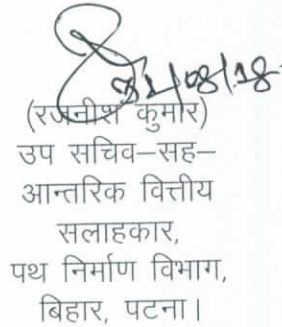 31/08/18
(रजनीश कुमार)
उप सचिव-सह-
आन्तरिक वित्तीय
सलाहकार,
पथ निर्माण विभाग,
बिहार, पटना।